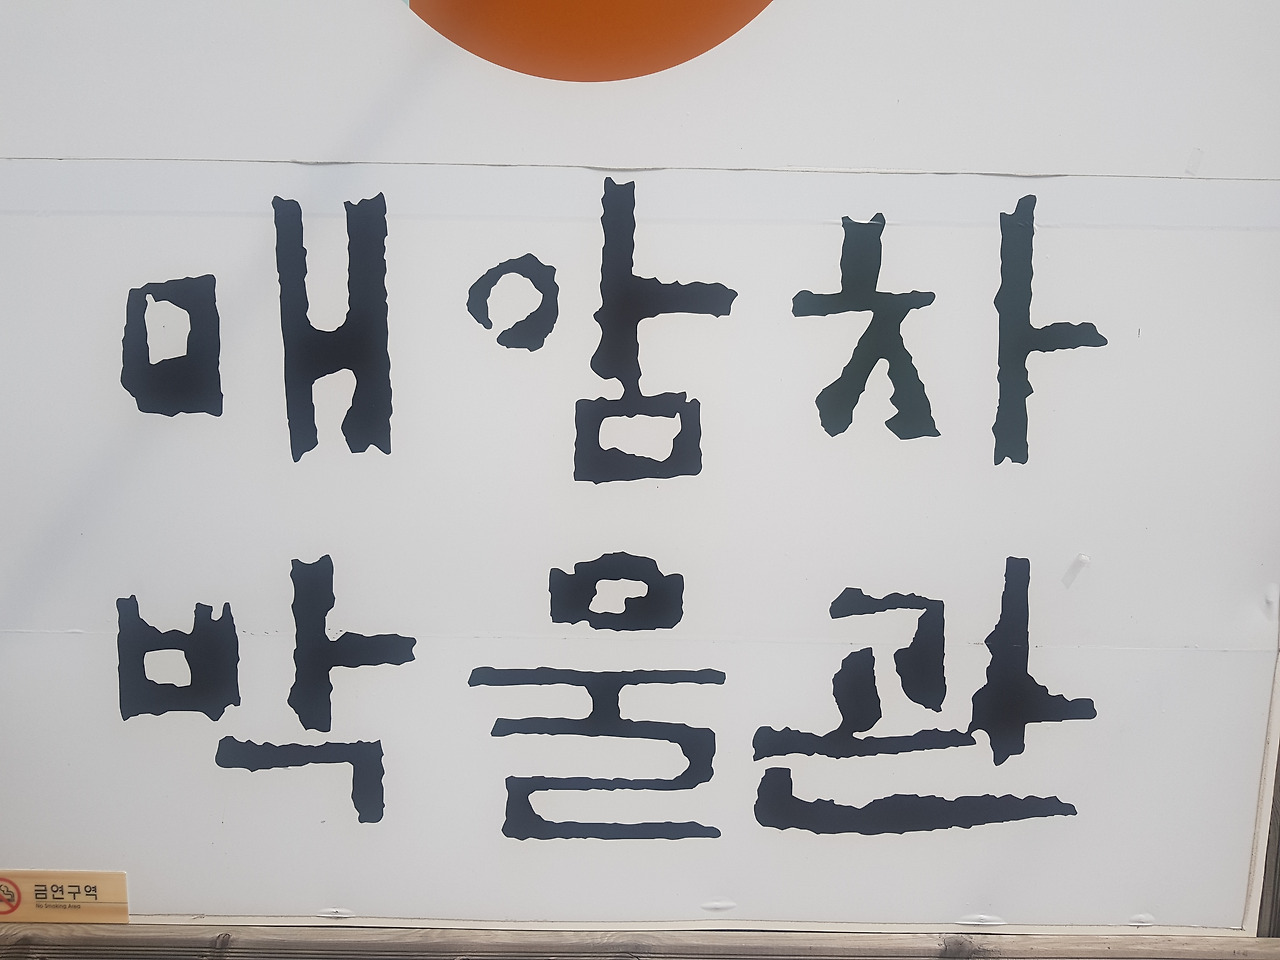 매암차
박물관
금연구역
No Smoking Area